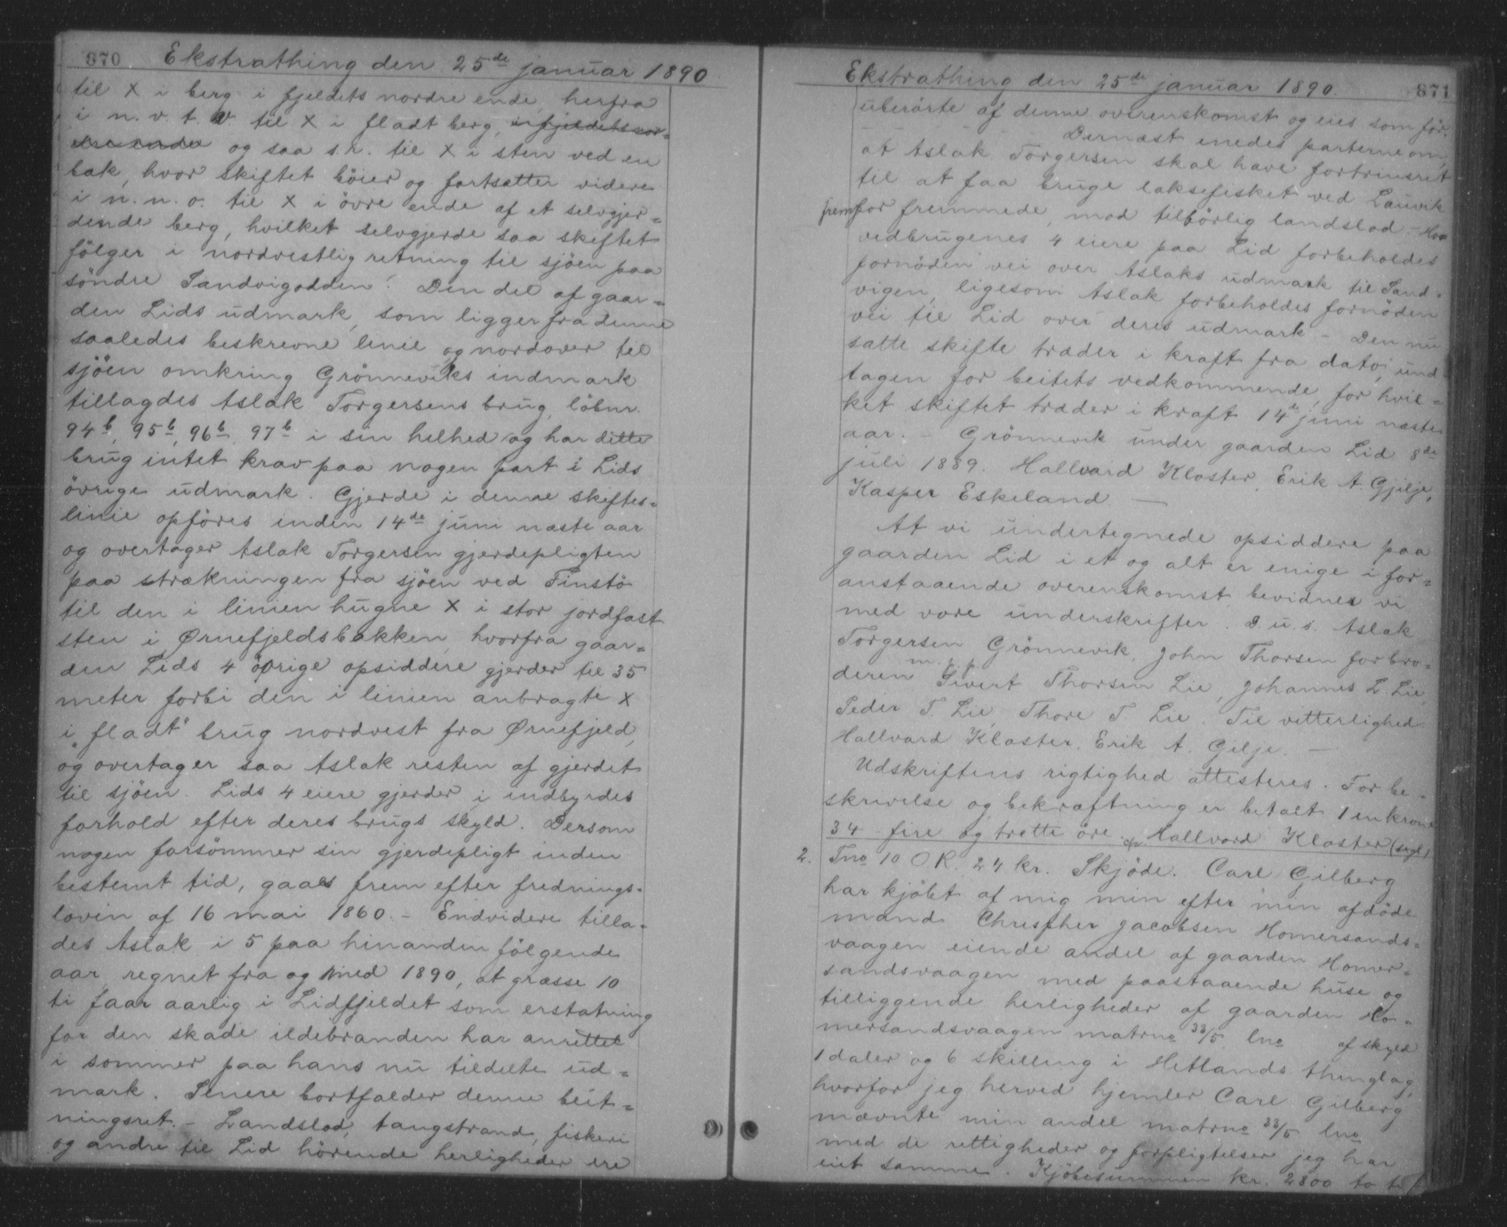 870 Ekstrathing den 25de januar 1890
til X i berg i fjeldets nordre ende, herfra
i n. v. t. v til X i fladt berg, i fjeldets nor=
dre ende og saa s.v. til X i sten ved en
bak, hvor skiftet böier og fortsætter videre
i n. n. o. til X i övre ende af et selvgjer=
dende berg, hvilket selvgjerde saa skiftet
fölger i nordvestlig retning til sjöen paa
söndre Sandvigodden. Den del af gaar=
den Lids udmark, som ligger fra denne
saaledes beskrevne linie og nordover til
sjöen omkring Grönneviks indmark
tillagdes Aslak Torgersens brug, löbnr.
94b, 95b, 96b, 97b i sin helhed og har dette
brug intet krav paa nogen part i Lids
övrige udmark. Gjerde i denne skiftes=
linie opföres inden 14de juni næste aar
og overtager Aslak Torgersen gjerdepligten
paa strækningen fra sjöen ved Finstö
til den i linien hugne X i stor jordfast
sten i Ørnefjeldsbakken, hvorfra gaar=
den Lids 4 övrige opsiddere gjerder til 35
meter forbi den i linien anbragte X
i "fladt" brug nordvest fra Ørnefjeld,
og overtager saa Aslak resten af gjerdet
til sjöen. Lids 4 eiere gjerder i indbyrdes
forhold efter deres brugs skyld. Dersom
nogen forsömmer sin gjerdepligt inden
bestemt tid, gaaes frem efter frednings=
loven af 16 mai 1860. – Endvidere tilla=
des Aslak i 5 paa hinanden fölgende
aar, regnet fra og med 1890, at græsse 10
ti faar aarlig i Lidfjeldet som erstatning
for den skade ildebranden har anrettet
i sommer paa hans nu tildelte ud=
mark. Senere bortfalder denne beit=
ningsret. – Landslod, tangstrand, fiskeri
og andre til Lid hörende herligheder ere
Ekstrathing den 25de januar 1890. 871
uberörte af denne overenskomst og eies som för.
– – – Dernæst enedes parterne om,
at Aslak Torgersen skal have fortrinsret
til at faa bruge laksefisket ved Lauvik
fremfor fremmede, mod tilbörlig landslod. – Hov
vedbrugenes 4 eiere paa Lid forbeholdes
fornöden vei over Aslaks udmark til Sand=
vigen, ligesom Aslak forbeholdes fornöden
vei til Lid over deres udmark. – Den nu
satte skifte træder i kraft fra dato, und=
tagen for beitets vedkommende, for hvil=
ket skiftet træder i kraft 14de juni næste
aar. – Grönnevik under gaarden Lid 8de
juli 1889. Hallvard Kloster, Erik A. Gjilje,
Kasper Eskeland. —
At vi undertegnede opsiddere paa
gaarden Lid i et og alt er enige i for=
anstaaende overenskomst bevidner vi
med vore underskrifter. D. u. s. Aslak
Torgersen Grönnevik. John Thorsen for bro=
deren Sivert Thorsen Lie, Johannes L. Lie,
m. p. p.
Peder T. Lie, Thore T. Lie. Til vitterlighed
Hallvard Kloster. Erik A. Gilje. —
Udskriftens rigtighed attesteres. For be=
skrivelse og bekræftning er betalt 1 en krone
34 fire og trette öre. Hallvard Kloster
2. Tno 10 O.R. 24 kr. Skjöde. Carl Gilberg
har kjöbt af mig min efter min afdöde
mand Chrispher Jacobsen Homersands=
vaagen eiende andel af gaarden Homer=
sandsvaagen med paastaaende huse og
tilliggende herligheder af gaarden Ho=
mersandsvaagen matrno 33/5 lno af skyld
1 daler og 6 skilling i Hetlands thinglag,
hvorfor jeg herved hjemler Carl Gilberg
nævnte min andel matrno 33/5 lno
med de rettigheder og forpligtelser jeg har
eiet samme. Kjöbesummen kr. 2800 to t